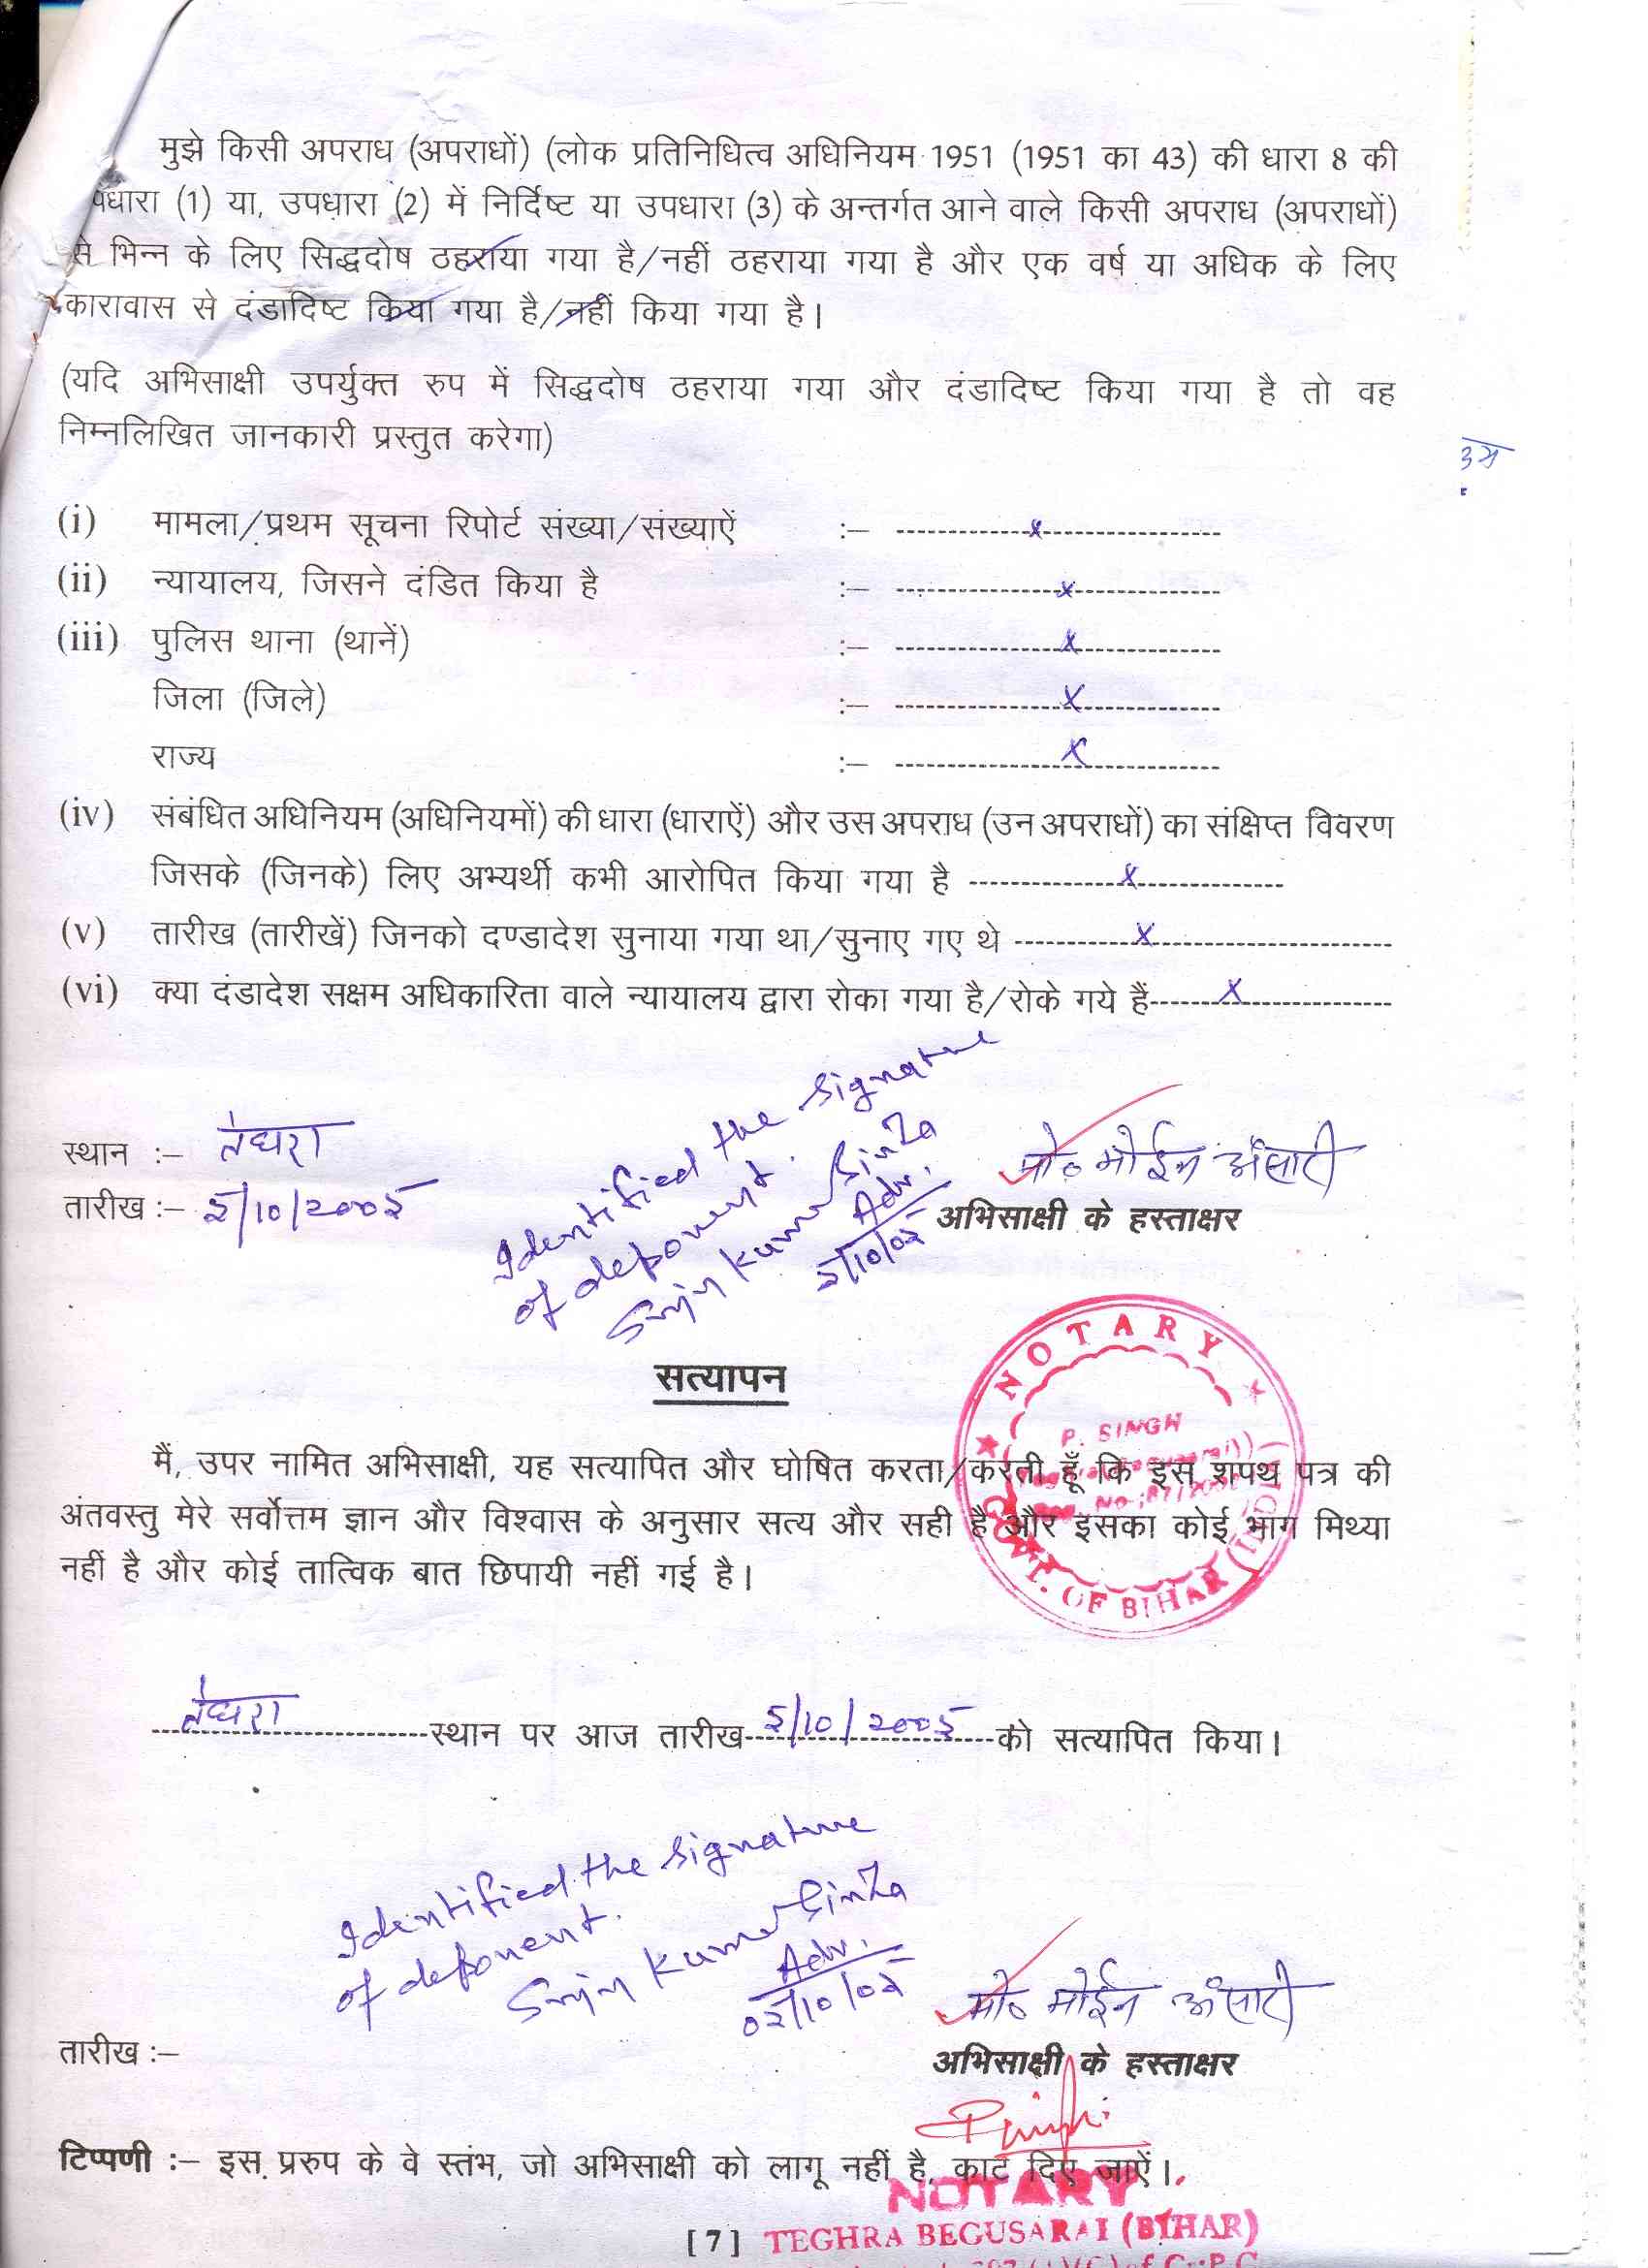 मुझे किसी अपराध (अपराधों) (लोक प्रतिनिधित्व अधिनियम 1951 (1951 का 43) की धारा 8 की
पधारा (1) या, उपधारा (2) में निर्दिष्ट या उपधारा (3) के अन्तर्गत आने वाले किसी अपराध (अपराधों)
से भिन्न के लिए सिद्धदोष ठहराया गया है/नहीं ठहराया गया है और एक वर्ष या अधिक के लिए
कारावास से दंडादिष्ट किया गया है/नहीं किया गया है।
(यदि अभिसाक्षी उपर्युक्त रुप में सिद्धदोष ठहराया गया और दंडादिष्ट किया गया है तो वह
निम्नलिखित जानकारी प्रस्तुत करेगा)
(i) मामला/प्रथम सूचना रिपोर्ट संख्या/संख्याऐं :– x
(ii) न्यायालय, जिसने दंडित किया है :– x
(iii) पुलिस थाना (थानें) :– x
जिला (जिले) :– x
राज्य :– x
(iv) संबंधित अधिनियम (अधिनियमों) की धारा (धाराऐं) और उस अपराध (उन अपराधों) का संक्षिप्त विवरण
जिसके (जिनके) लिए अभ्यर्थी कभी आरोपित किया गया है x
(v) तारीख (तारीखें) जिनको दण्डादेश सुनाया गया था/सुनाए गए थे x
(vi) क्या दंडादेश सक्षम अधिकारिता वाले न्यायालय द्वारा रोका गया है/रोके गये हैं x
Identified the signature
of deponent.
Kumar Sinha
Adv.
5/10/05
स्थान :– तेघरा
मो० मोईन अंसारी
तारीख :– 5/10/2005
अभिसाक्षी के हस्ताक्षर
NOTARY
P. SINGH
GOVT. OF BIHAR (INDIA)
सत्यापन
मैं, उपर नामित अभिसाक्षी, यह सत्यापित और घोषित करता/करती हूँ कि इस शपथ पत्र की
अंतवस्तु मेरे सर्वोत्तम ज्ञान और विश्वास के अनुसार सत्य और सही है और इसका कोई भाग मिथ्या
नहीं है और कोई तात्विक बात छिपायी नहीं गई है।
तेघरा स्थान पर आज तारीख 5/10/2005 को सत्यापित किया।
Identified the signature
of deponent.
Kumar Sinha
Adv.
05/10/05
मो० मोईन अंसारी
तारीख :–
अभिसाक्षी के हस्ताक्षर
टिप्पणी :– इस प्ररुप के वे स्तंभ, जो अभिसाक्षी को लागू नहीं है, काट दिए जाऐं।
NOTARY
[7] TEGHRA BEGUSARAI (BIHAR)